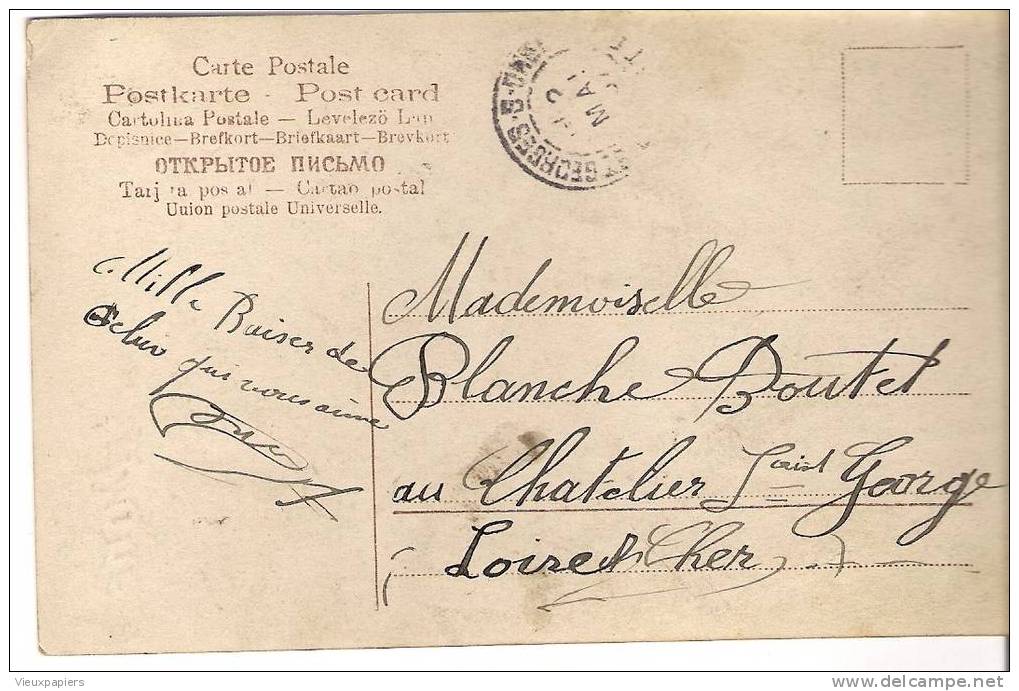 Carte Postale
Postkarte - Post card
Cartolina Postale — Levelező Lap
Dopisnice—Brefkort—Briefkaart—Brevkort
ОТКРЫТОЕ ПИСЬМО
Tarjeta postal — Cartao postal
Union postale Universelle.
GEORGES-S-
MA
Mille Baiser de
celui qui vous aime
Mademoiselle
Blanche Boutet
au Chatelier Saint George
Loir et Cher
Vieuxpapiers
delcampe.net